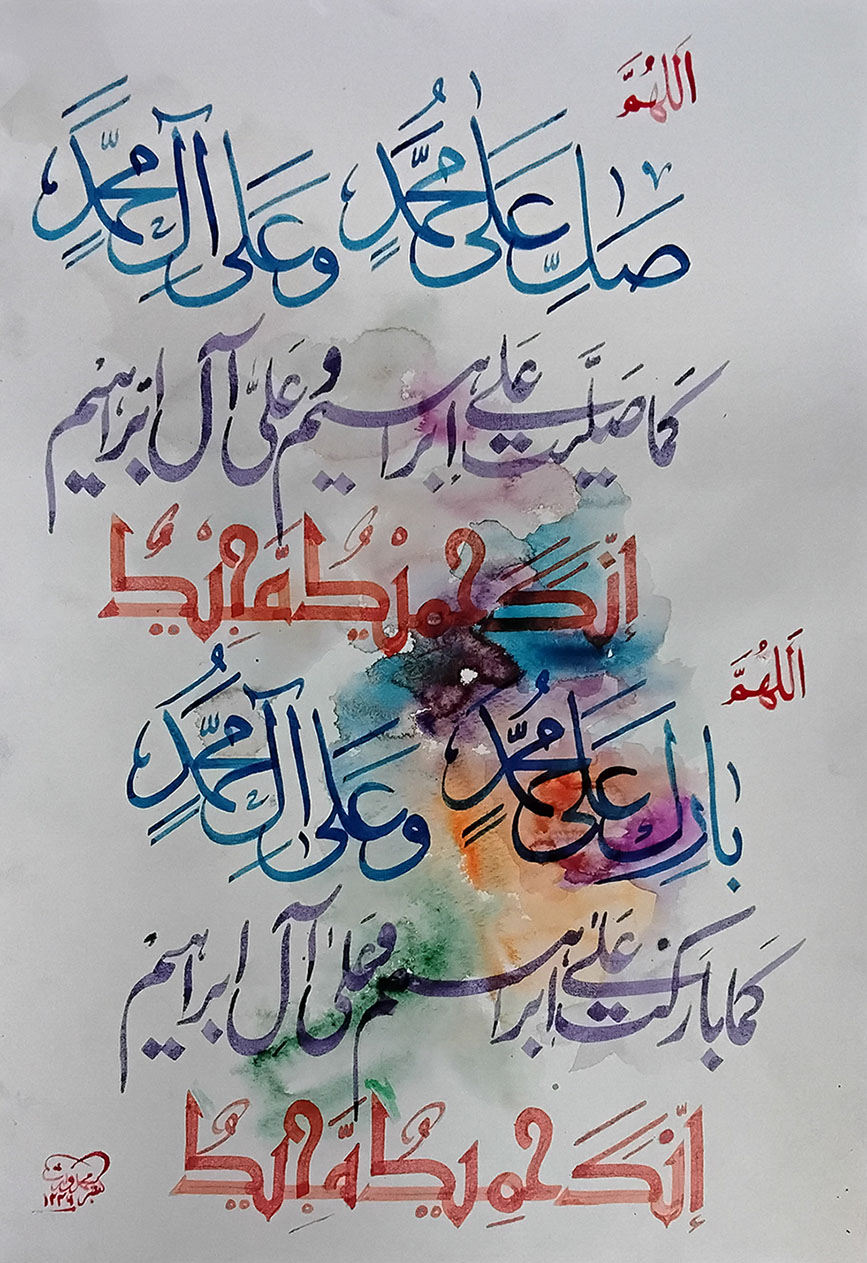 اَللهُمَّ
صَلِّ عَلٰى مُحَمَّدٍ وَعَلٰى آلِ مُحَمَّدٍ
كَمَا صَلَّيْتَ عَلٰى إِبْرَاهِيمَ وَعَلٰى آلِ ابْرَاهِيْم
إِنَّكَ حَمِيْدٌ مَّجِيْدٌ
اَللهُمَّ
بَارِكْ عَلٰى مُحَمَّدٍ وَعَلٰى آلِ مُحَمَّدٍ
كَمَا بَارَكْتَ عَلٰى إِبْرَاهِيمَ وَعَلٰى آلِ ابْرَاهِيْم
إِنَّكَ حَمِيْدٌ مَّجِيْدٌ